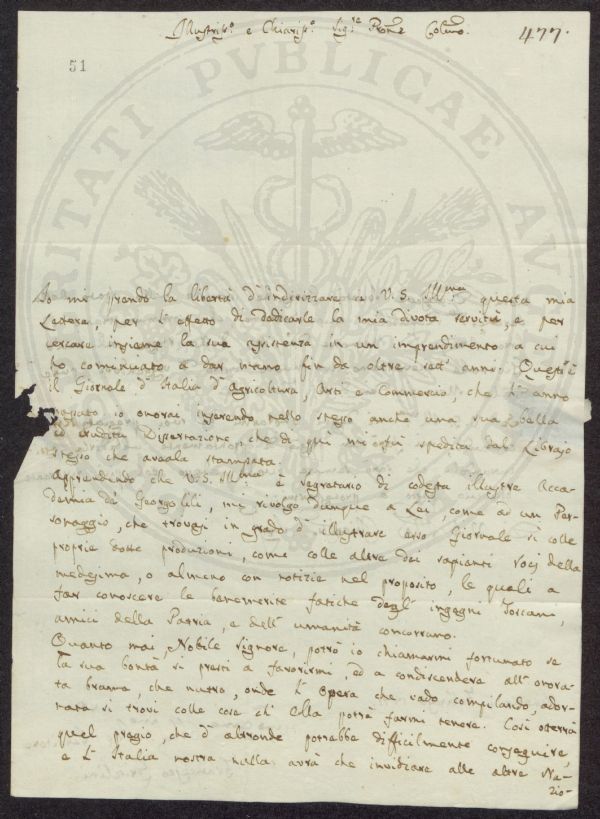 Illustriss.º e Chiariss.º Sig.re Pron.e Colmo.
477.
51
PROSPERITATI PVBLICAE AVG
Io mi prendo la libertà d'indirizzare a V. S. Ill.ma questa mia
Lettera, per l'effetto di dedicarle la mia divota servitù, e per
cercare insieme la sua assistenza in un imprendimento a cui
ho cominciato a dar mano fin da oltre sett' anni. Questi è
il Giornale d'Italia d'Agricoltura, Arti e Commercio, che l'anno
passato io onorai inserendo nello stesso anche una sua bella
ed erudita Dissertazione, che di qui mi spedita dal Librajo
stesso che aveala stampata.
Apprendendo che V. S. Ill.ma è segretario di codesta illustre Acca-
demia de' Georgofili, mi rivolgo dunque a Lei, come ad un Per-
sonaggio, che trovasi in grado d'illustrare esso Giornale sì colle
proprie dotte produzioni, come colle altre dei sapienti Socj della
medesima, o almeno con notizie nel proposito, le quali a
far conoscere le benemerite fatiche degl' ingegni Toscani,
amici della Patria, e dell' umanità concorrano.
Quanto mai, Nobile Signore, potrò io chiamarmi fortunato se
la sua bontà si presti a favorirmi, ed a condiscendere all' onora-
ta brama, che nutro, onde l'Opera che vado compilando, ador-
nata si trovi colle cose ch' Ella potrà farmi tenere. Così otterrà
quel pregio, che d'altronde potrebbe difficilmente conseguire,
e l'Italia nostra nulla avrà che invidiare alle altre Na-
zio-